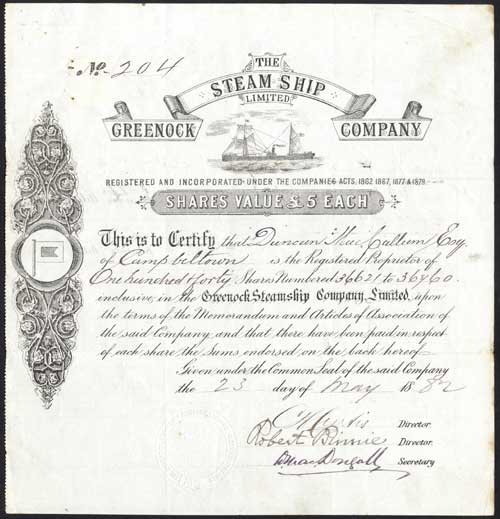 No. 204
THE
STEAM SHIP
LIMITED.
GREENOCK COMPANY
REGISTERED AND INCORPORATED UNDER THE COMPANIES ACTS, 1862, 1867, 1877 & 1879.
SHARES VALUE £5 EACH
This is to Certify that Duncan MacCallum Esq.
of Campbeltown is the Registered Proprietor of
One hundred forty Shares Numbered 36621 to 36460.
inclusive, in the Greenock Steamship Company, Limited, upon
the terms of the Memorandum and Articles of Association of
the said Company, and that there have been paid in respect
of each share the sums endorsed on the back hereof.
Given under the Common Seal of the said Company
the 23 day of May 1882
Curtis Director.
Robert Binnie Director.
MacDougall Secretary